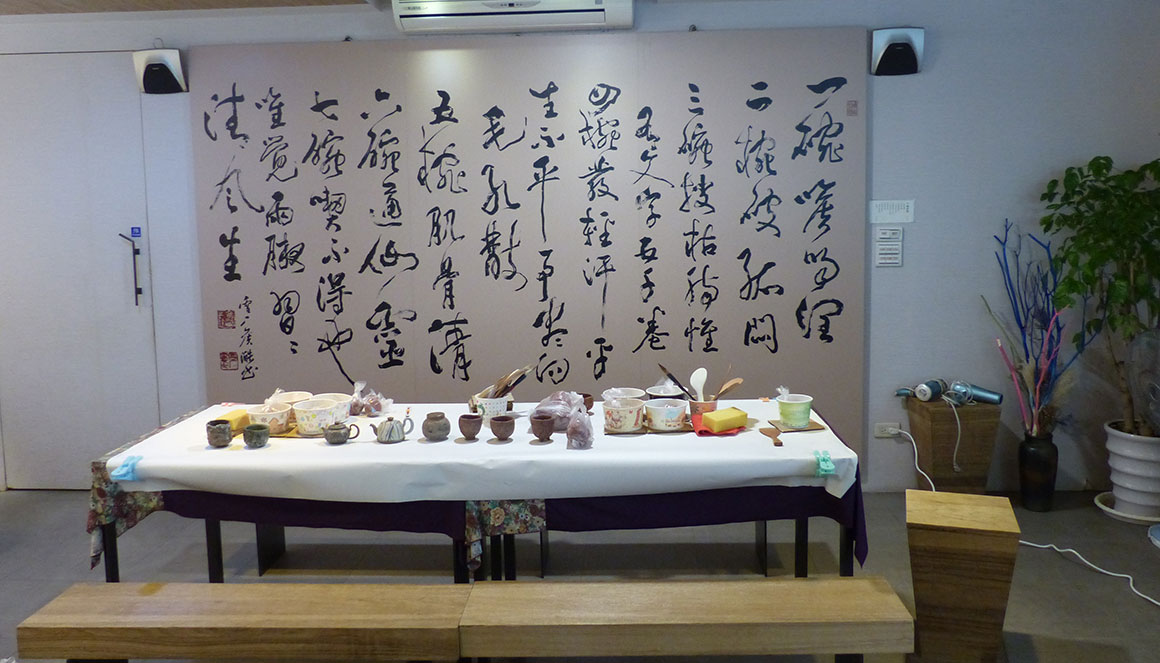 一碗喉吻潤
二椀破孤悶
三碗搜枯腸惟
有文字五千卷
四椀發輕汗平
生不平事盡向
毛孔散
五椀肌骨清
六碗通仙靈
七碗喫不得也
唯覺兩腋習習
清風生